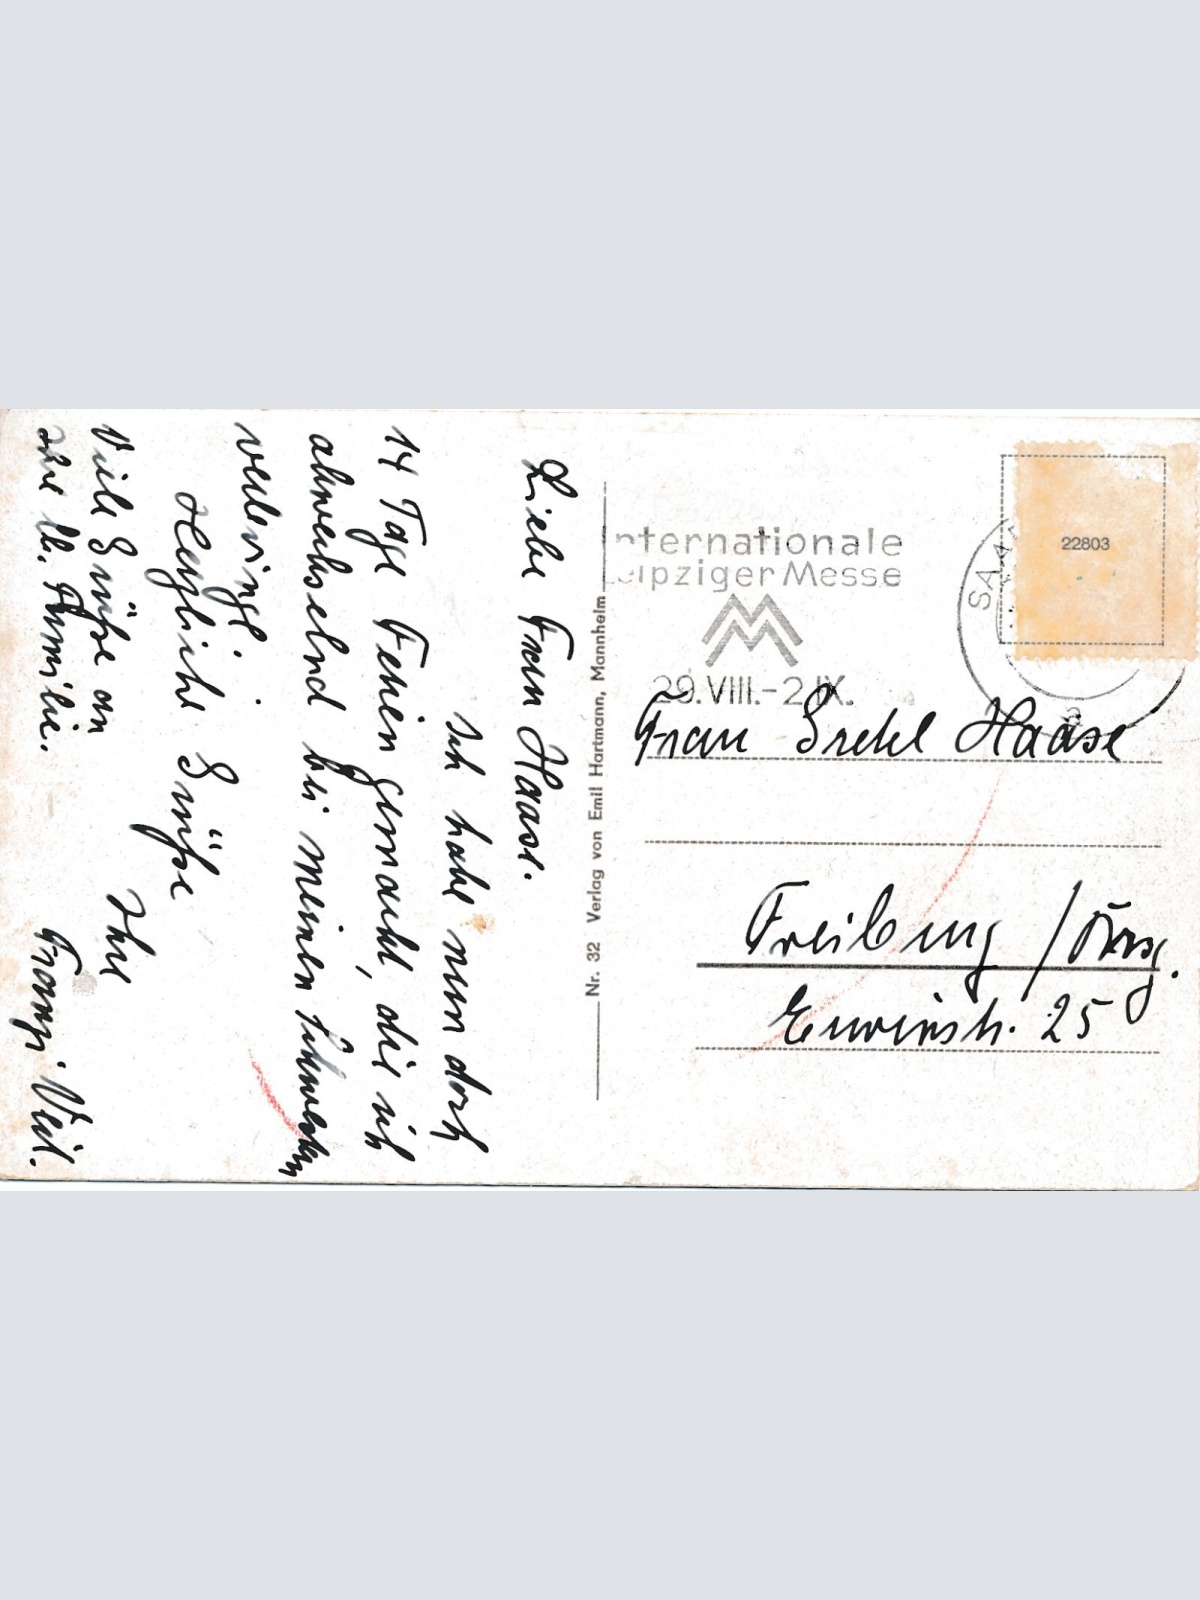 Liebe Frau Haase.
Ich habe nun doch
14 Tage Ferien gemacht, die ich
abwechselnd bei meinen Schwestern
verbringe.
Herzliche Grüße
Ihre
Franzi Veit.
Viele Grüße an
Ihre lb. Familie.
Nr. 32 Verlag von Emil Hartmann, Mannheim
Internationale
Leipziger Messe
MM
29.VIII.-2.IX.
SAA
22803
a
Frau Gretel Haase
Freiburg / Brsg.
Erwinstr. 25